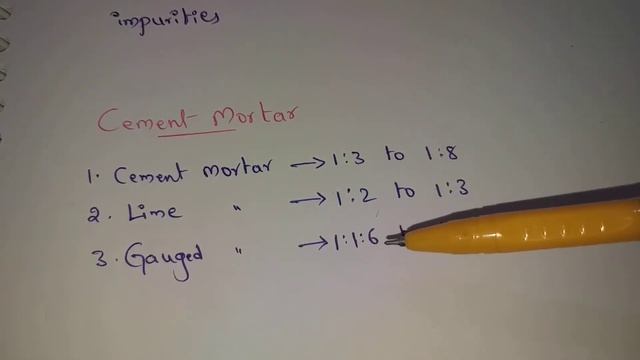 impurities
Cement Mortar
1. Cement mortar → 1:3 to 1:8
2. Lime " → 1:2 to 1:3
3. Gauged " → 1:1:6